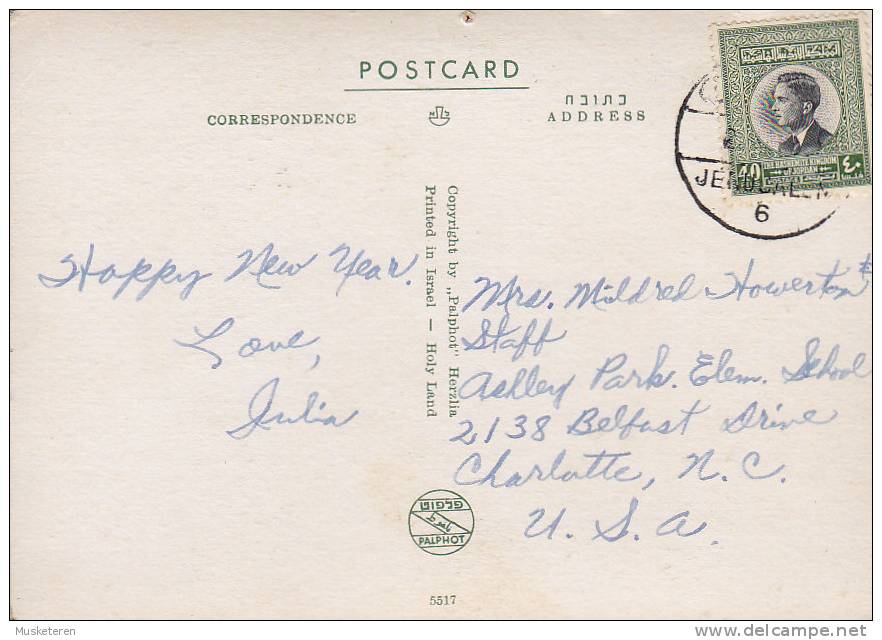 POSTCARD
CORRESPONDENCE
כתובת
ADDRESS
40
THE HASHEMITE KINGDOM
OF JORDAN
٤٠
JERUSALEM
6
Copyright by „Palphot" Herzlia
Printed in Israel — Holy Land
Happy New Year.
Love,
Julia
Mrs. Mildred Howerton &
Staff
Ashley Park Elem. School
2138 Belfast Drive
Charlotte, N. C.
U. S. A.
פלפוט
PALPHOT
5517
Musketeren
delcampe.net